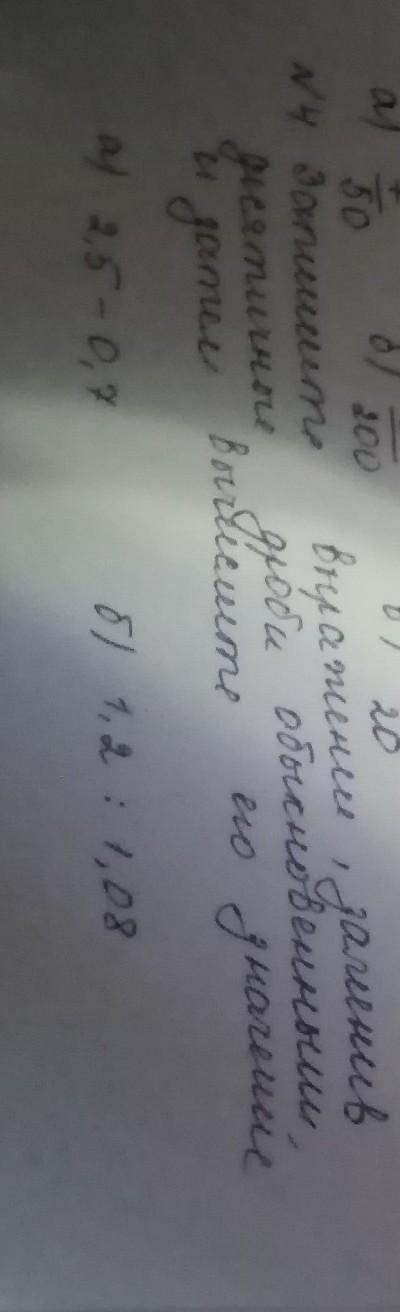 а) 50 б) 200 в) 20
N4 Запишите выражение, заменив
десятичные дроби обыкновенными,
и затем вычислите его значение
а) 2,5 - 0,7 б) 1,2 : 1,08